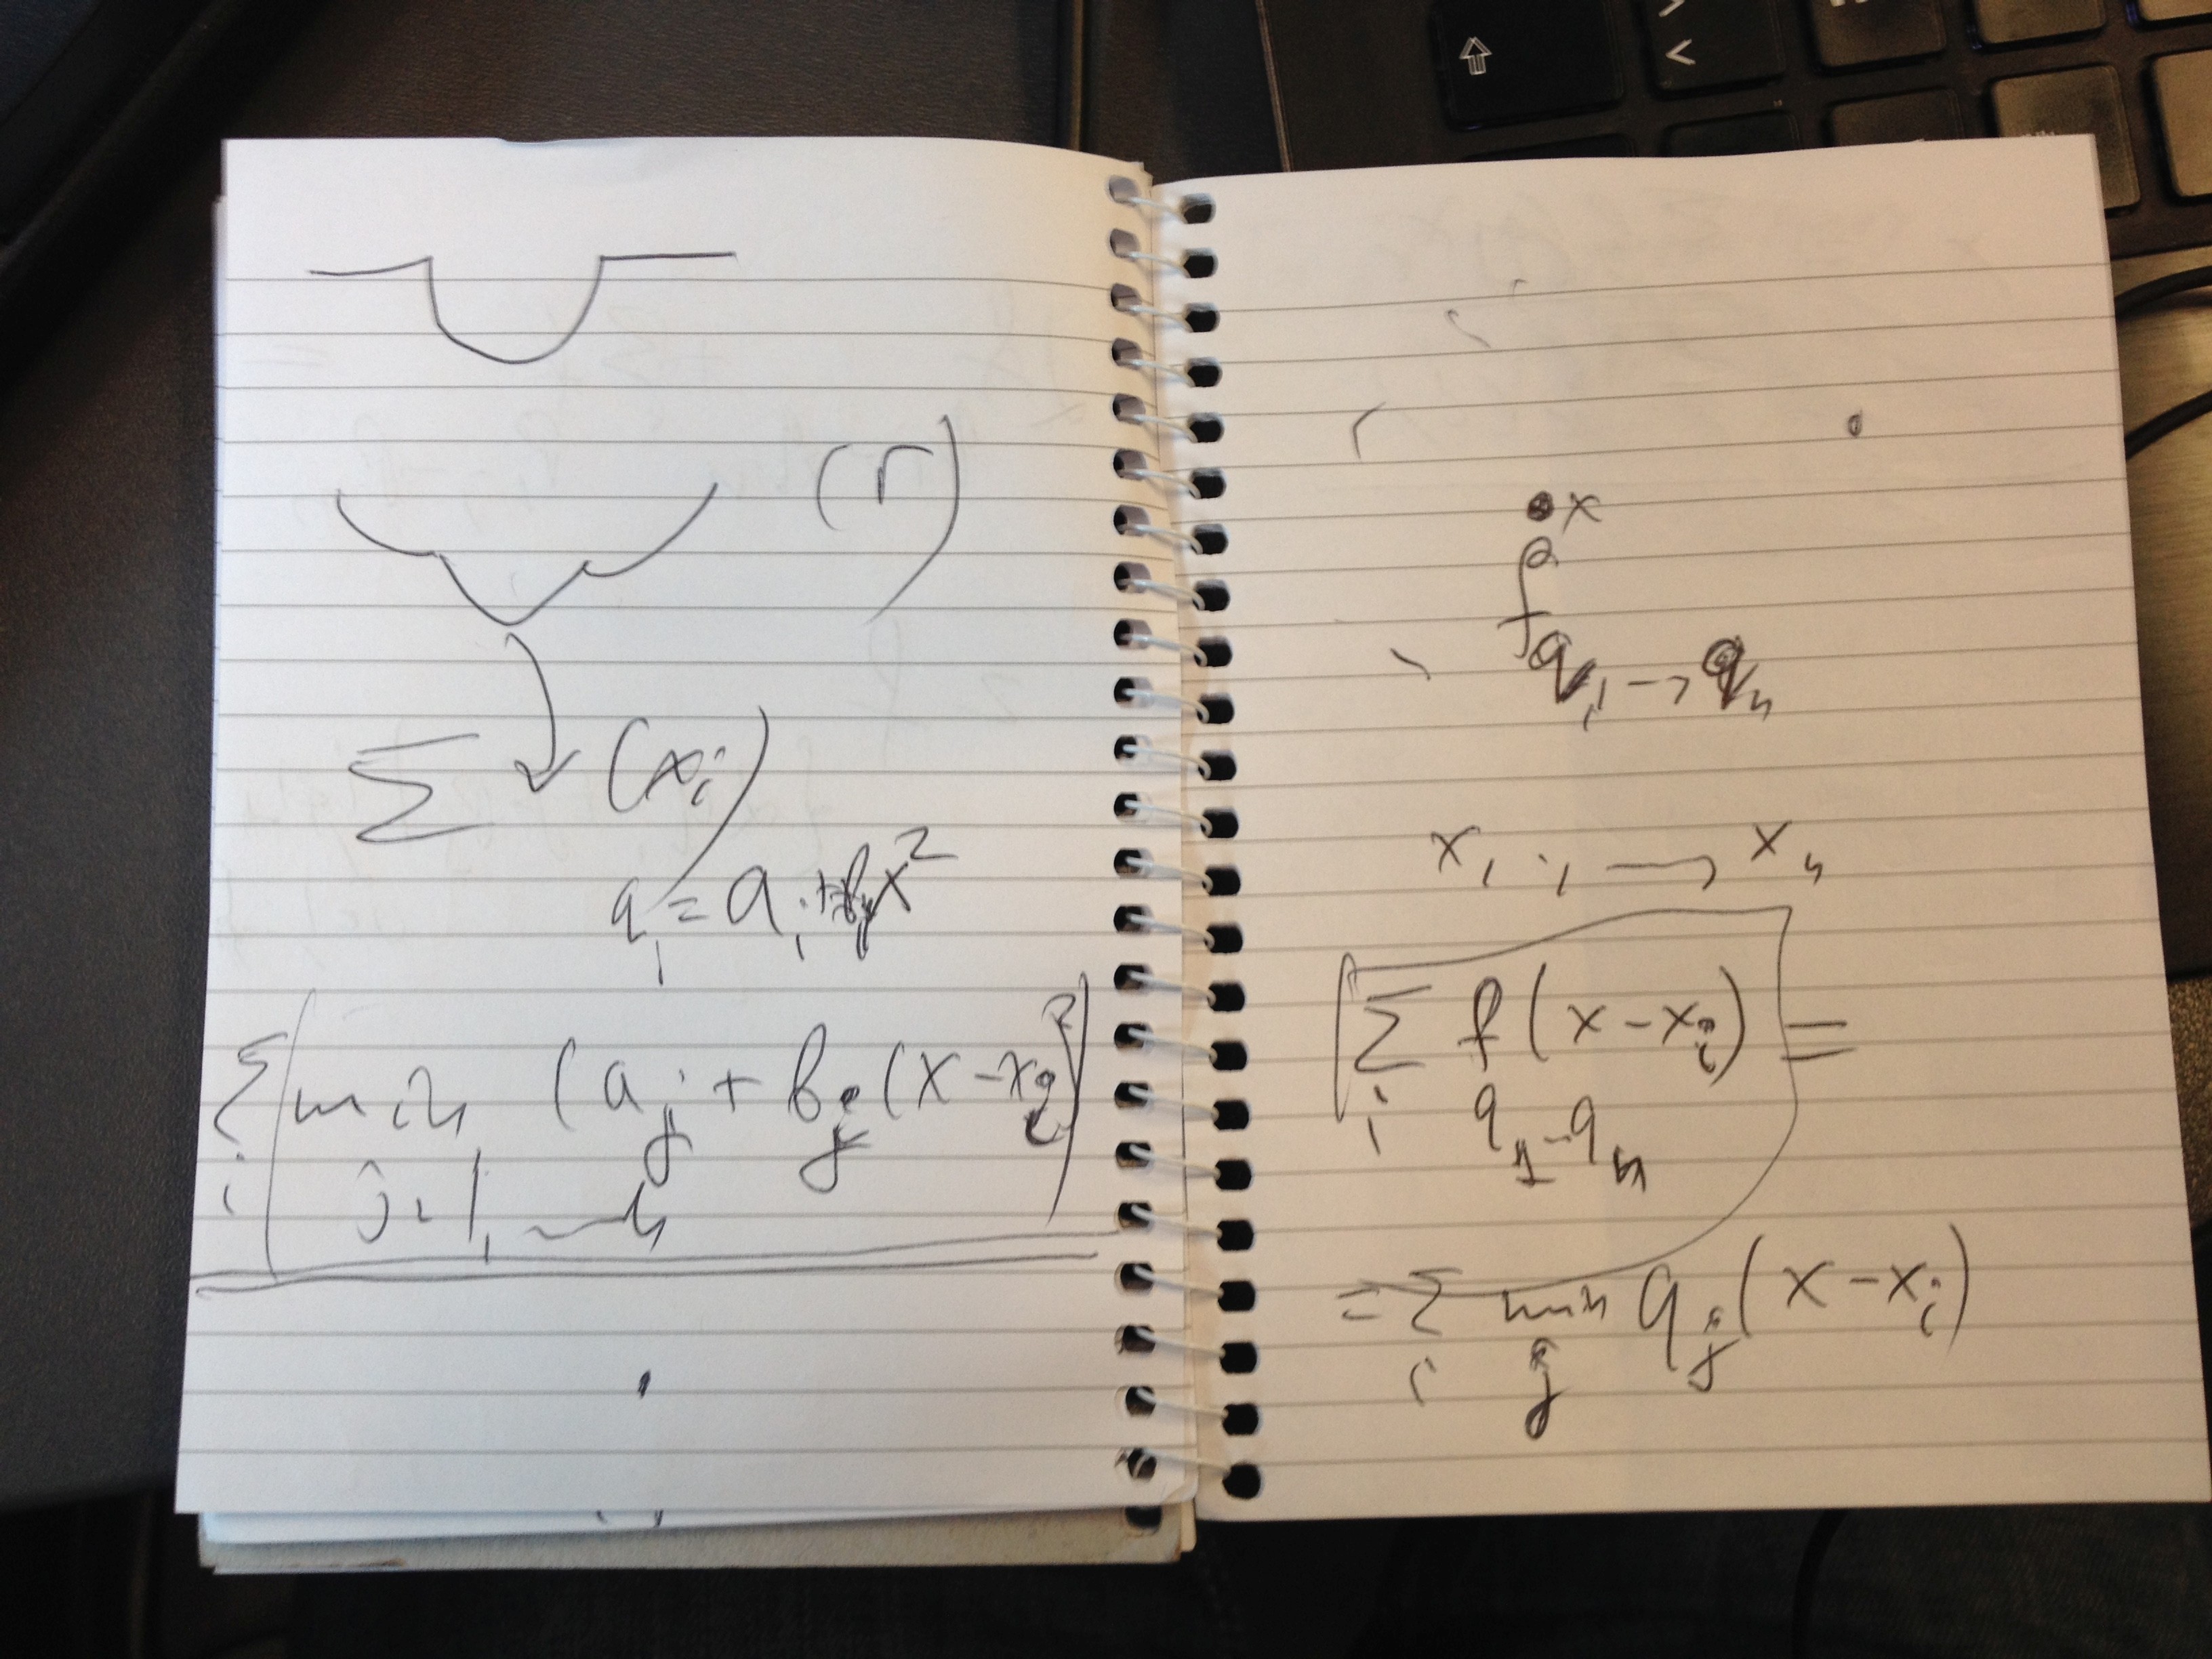 (r)
Σ (x_i)
q_i = a_i + b_i x^2
Σ_i ( min_{j=1, ... n} (a_j + b_j (x - x_i)^2 )
x
f
q_1, ... q_n
x_1, ... x_n
Σ_i f_{q_1 - q_n} (x - x_i) =
= Σ_i min_j q_j (x - x_i)